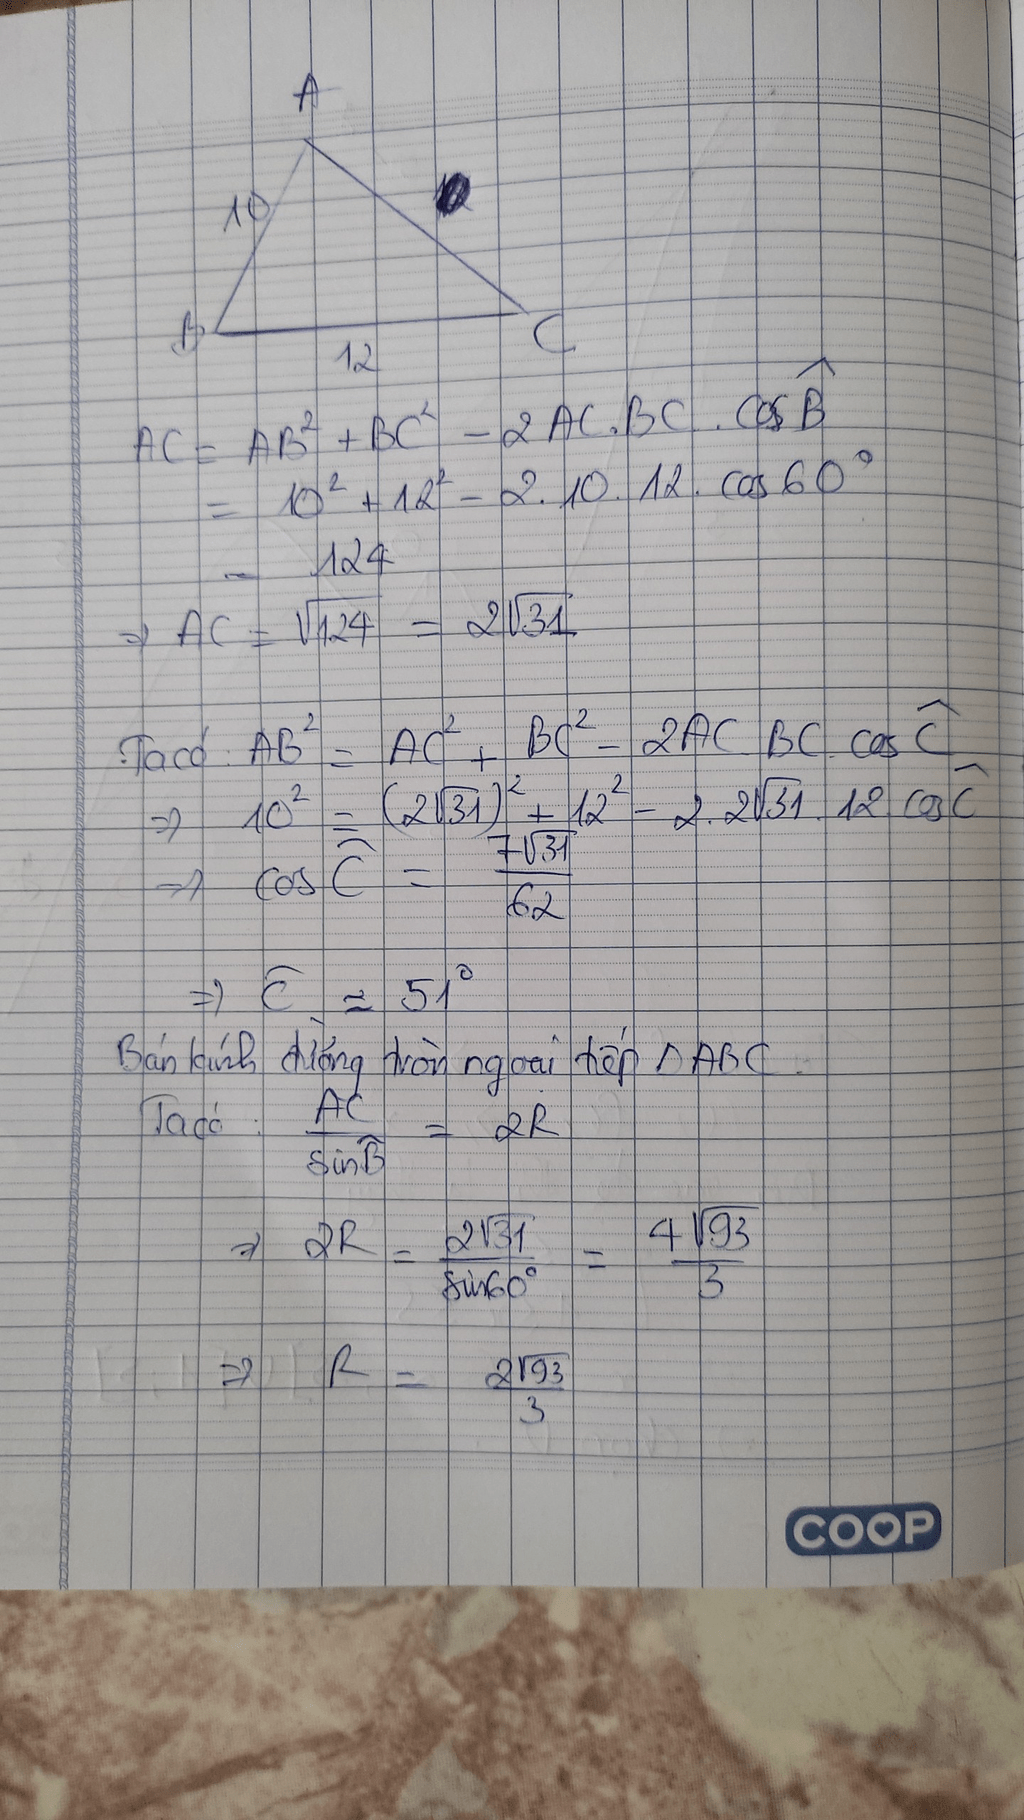 A
10
B
C
12
AC = AB² + BC² - 2AC.BC . cos B̂
= 10² + 12² - 2.10.12. cos 60°
= 124
⇒ AC = √124 = 2√31
Ta có : AB² = AC² + BC² - 2AC BC. cos Ĉ
⇒ 10² = (2√31)² + 12² - 2.2√31.12 cos Ĉ
⇒ cos Ĉ = 7√31/62
⇒ Ĉ ≈ 51°
Bán kính đường tròn ngoại tiếp ΔABC.
Ta có : AC/sin B̂ = 2R
⇒ 2R = 2√31/sin60° = 4√93/3
⇒ R = 2√93/3
COOP